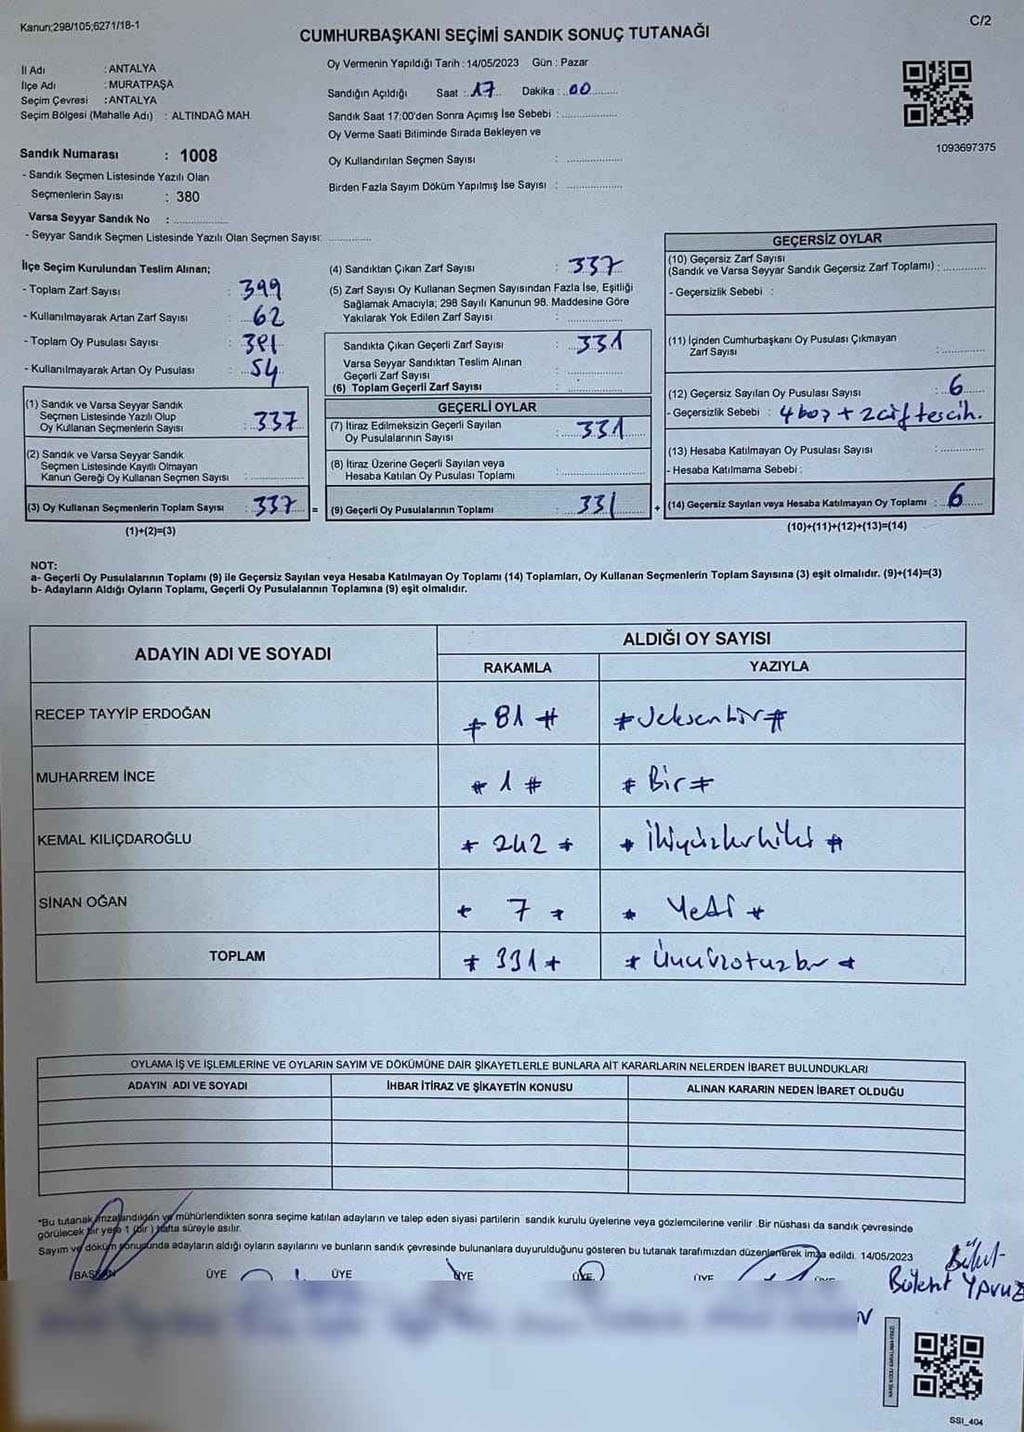 Kanun;298/105;6271/18-1
C/2
CUMHURBAŞKANI SEÇİMİ SANDIK SONUÇ TUTANAĞI
İl Adı : ANTALYA
İlçe Adı : MURATPAŞA
Seçim Çevresi : ANTALYA
Seçim Bölgesi (Mahalle Adı) : ALTINDAĞ MAH.
Sandık Numarası : 1008
- Sandık Seçmen Listesinde Yazılı Olan
Seçmenlerin Sayısı : 380
Varsa Seyyar Sandık No :
- Seyyar Sandık Seçmen Listesinde Yazılı Olan Seçmen Sayısı:
Oy Vermenin Yapıldığı Tarih : 14/05/2023 Gün : Pazar
Sandığın Açıldığı Saat : 17 Dakika : 00
Sandık Saat 17:00'den Sonra Açımış İse Sebebi :
Oy Verme Saati Bitiminde Sırada Bekleyen ve
Oy Kullandırılan Seçmen Sayısı :
Birden Fazla Sayım Döküm Yapılmış İse Sayısı :
1093697375
İlçe Seçim Kurulundan Teslim Alınan;
- Toplam Zarf Sayısı : 399
- Kullanılmayarak Artan Zarf Sayısı : 62
- Toplam Oy Pusulası Sayısı : 391
- Kullanılmayarak Artan Oy Pusulası : 54
(1) Sandık ve Varsa Seyyar Sandık
Seçmen Listesinde Yazılı Olup
Oy Kullanan Seçmenlerin Sayısı : 337
(2) Sandık ve Varsa Seyyar Sandık
Seçmen Listesinde Kayıtlı Olmayan
Kanun Gereği Oy Kullanan Seçmen Sayısı :
(3) Oy Kullanan Seçmenlerin Toplam Sayısı : 337 =
(1)+(2)=(3)
(4) Sandıktan Çıkan Zarf Sayısı : 337
(5) Zarf Sayısı Oy Kullanan Seçmen Sayısından Fazla İse, Eşitliği
Sağlamak Amacıyla; 298 Sayılı Kanunun 98. Maddesine Göre
Yakılarak Yok Edilen Zarf Sayısı :
Sandıkta Çıkan Geçerli Zarf Sayısı : 331
Varsa Seyyar Sandıktan Teslim Alınan
Geçerli Zarf Sayısı :
(6) Toplam Geçerli Zarf Sayısı :
GEÇERLİ OYLAR
(7) İtiraz Edilmeksizin Geçerli Sayılan
Oy Pusulalarının Sayısı : 331
(8) İtiraz Üzerine Geçerli Sayılan veya
Hesaba Katılan Oy Pusulası Toplamı :
(9) Geçerli Oy Pusulalarının Toplamı : 331 +
GEÇERSİZ OYLAR
(10) Geçersiz Zarf Sayısı
(Sandık ve Varsa Seyyar Sandık Geçersiz Zarf Toplamı) :
- Geçersizlik Sebebi :
(11) İçinden Cumhurbaşkanı Oy Pusulası Çıkmayan
Zarf Sayısı :
(12) Geçersiz Sayılan Oy Pusulası Sayısı : 6
- Geçersizlik Sebebi : 4 boş + 2 çift tercih.
(13) Hesaba Katılmayan Oy Pusulası Sayısı :
- Hesaba Katılmama Sebebi :
(14) Geçersiz Sayılan veya Hesaba Katılmayan Oy Toplamı : 6
(10)+(11)+(12)+(13)=(14)
NOT:
a- Geçerli Oy Pusulalarının Toplamı (9) ile Geçersiz Sayılan veya Hesaba Katılmayan Oy Toplamı (14) Toplamları, Oy Kullanan Seçmenlerin Toplam Sayısına (3) eşit olmalıdır. (9)+(14)=(3)
b- Adayların Aldığı Oyların Toplamı, Geçerli Oy Pusulalarının Toplamına (9) eşit olmalıdır.
ADAYIN ADI VE SOYADI
ALDIĞI OY SAYISI
RAKAMLA YAZIYLA
RECEP TAYYİP ERDOĞAN # 81 # # Seksenbir #
MUHARREM İNCE # 1 # # Bir #
KEMAL KILIÇDAROĞLU # 242 # # İkiyüzkırkiki #
SİNAN OĞAN # 7 # # Yedi #
TOPLAM # 331 # # Üçyüzotuzbir #
OYLAMA İŞ VE İŞLEMLERİNE VE OYLARIN SAYIM VE DÖKÜMÜNE DAİR ŞİKAYETLERLE BUNLARA AİT KARARLARIN NELERDEN İBARET BULUNDUKLARI
ADAYIN ADI VE SOYADI İHBAR İTİRAZ VE ŞİKAYETİN KONUSU ALINAN KARARIN NEDEN İBARET OLDUĞU
*Bu tutanak imzalandıktan ve mühürlendikten sonra seçime katılan adayların ve talep eden siyasi partilerin sandık kurulu üyelerine veya gözlemcilerine verilir .Bir nüshası da sandık çevresinde
görülecek bir yere 1 (bir ) hafta süreyle asılır.
Sayım ve döküm sonucunda adayların aldığı oyların sayılarını ve bunların sandık çevresinde bulunanlara duyurulduğunu gösteren bu tutanak tarafımızdan düzenlenerek imza edildi. 14/05/2023
BAŞKAN ÜYE ÜYE ÜYE ÜYE ÜYE ÜYE
Bülent
Bülent Yavuz
SSI_404